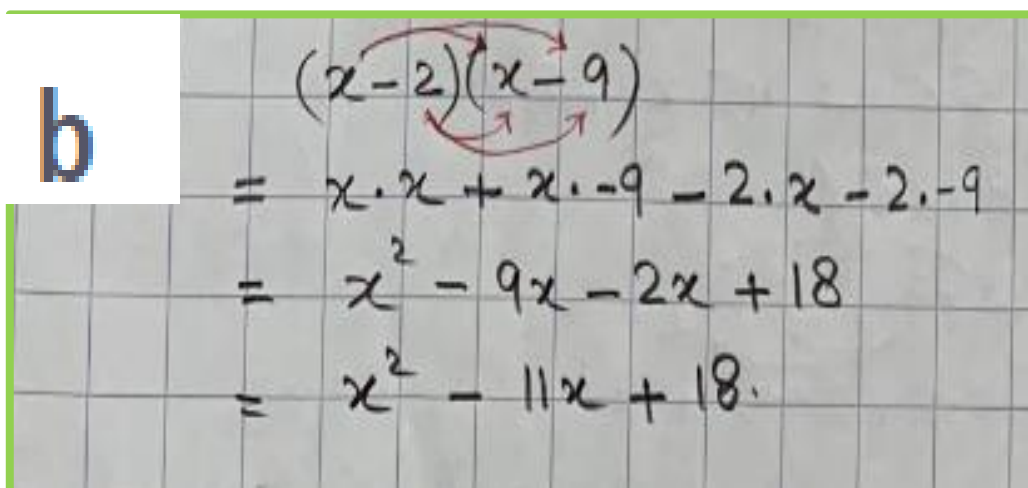 b
(x-2)(x-9)
= x.x + x.-9 - 2.x - 2.-9
= x² - 9x - 2x + 18
= x² - 11x + 18.